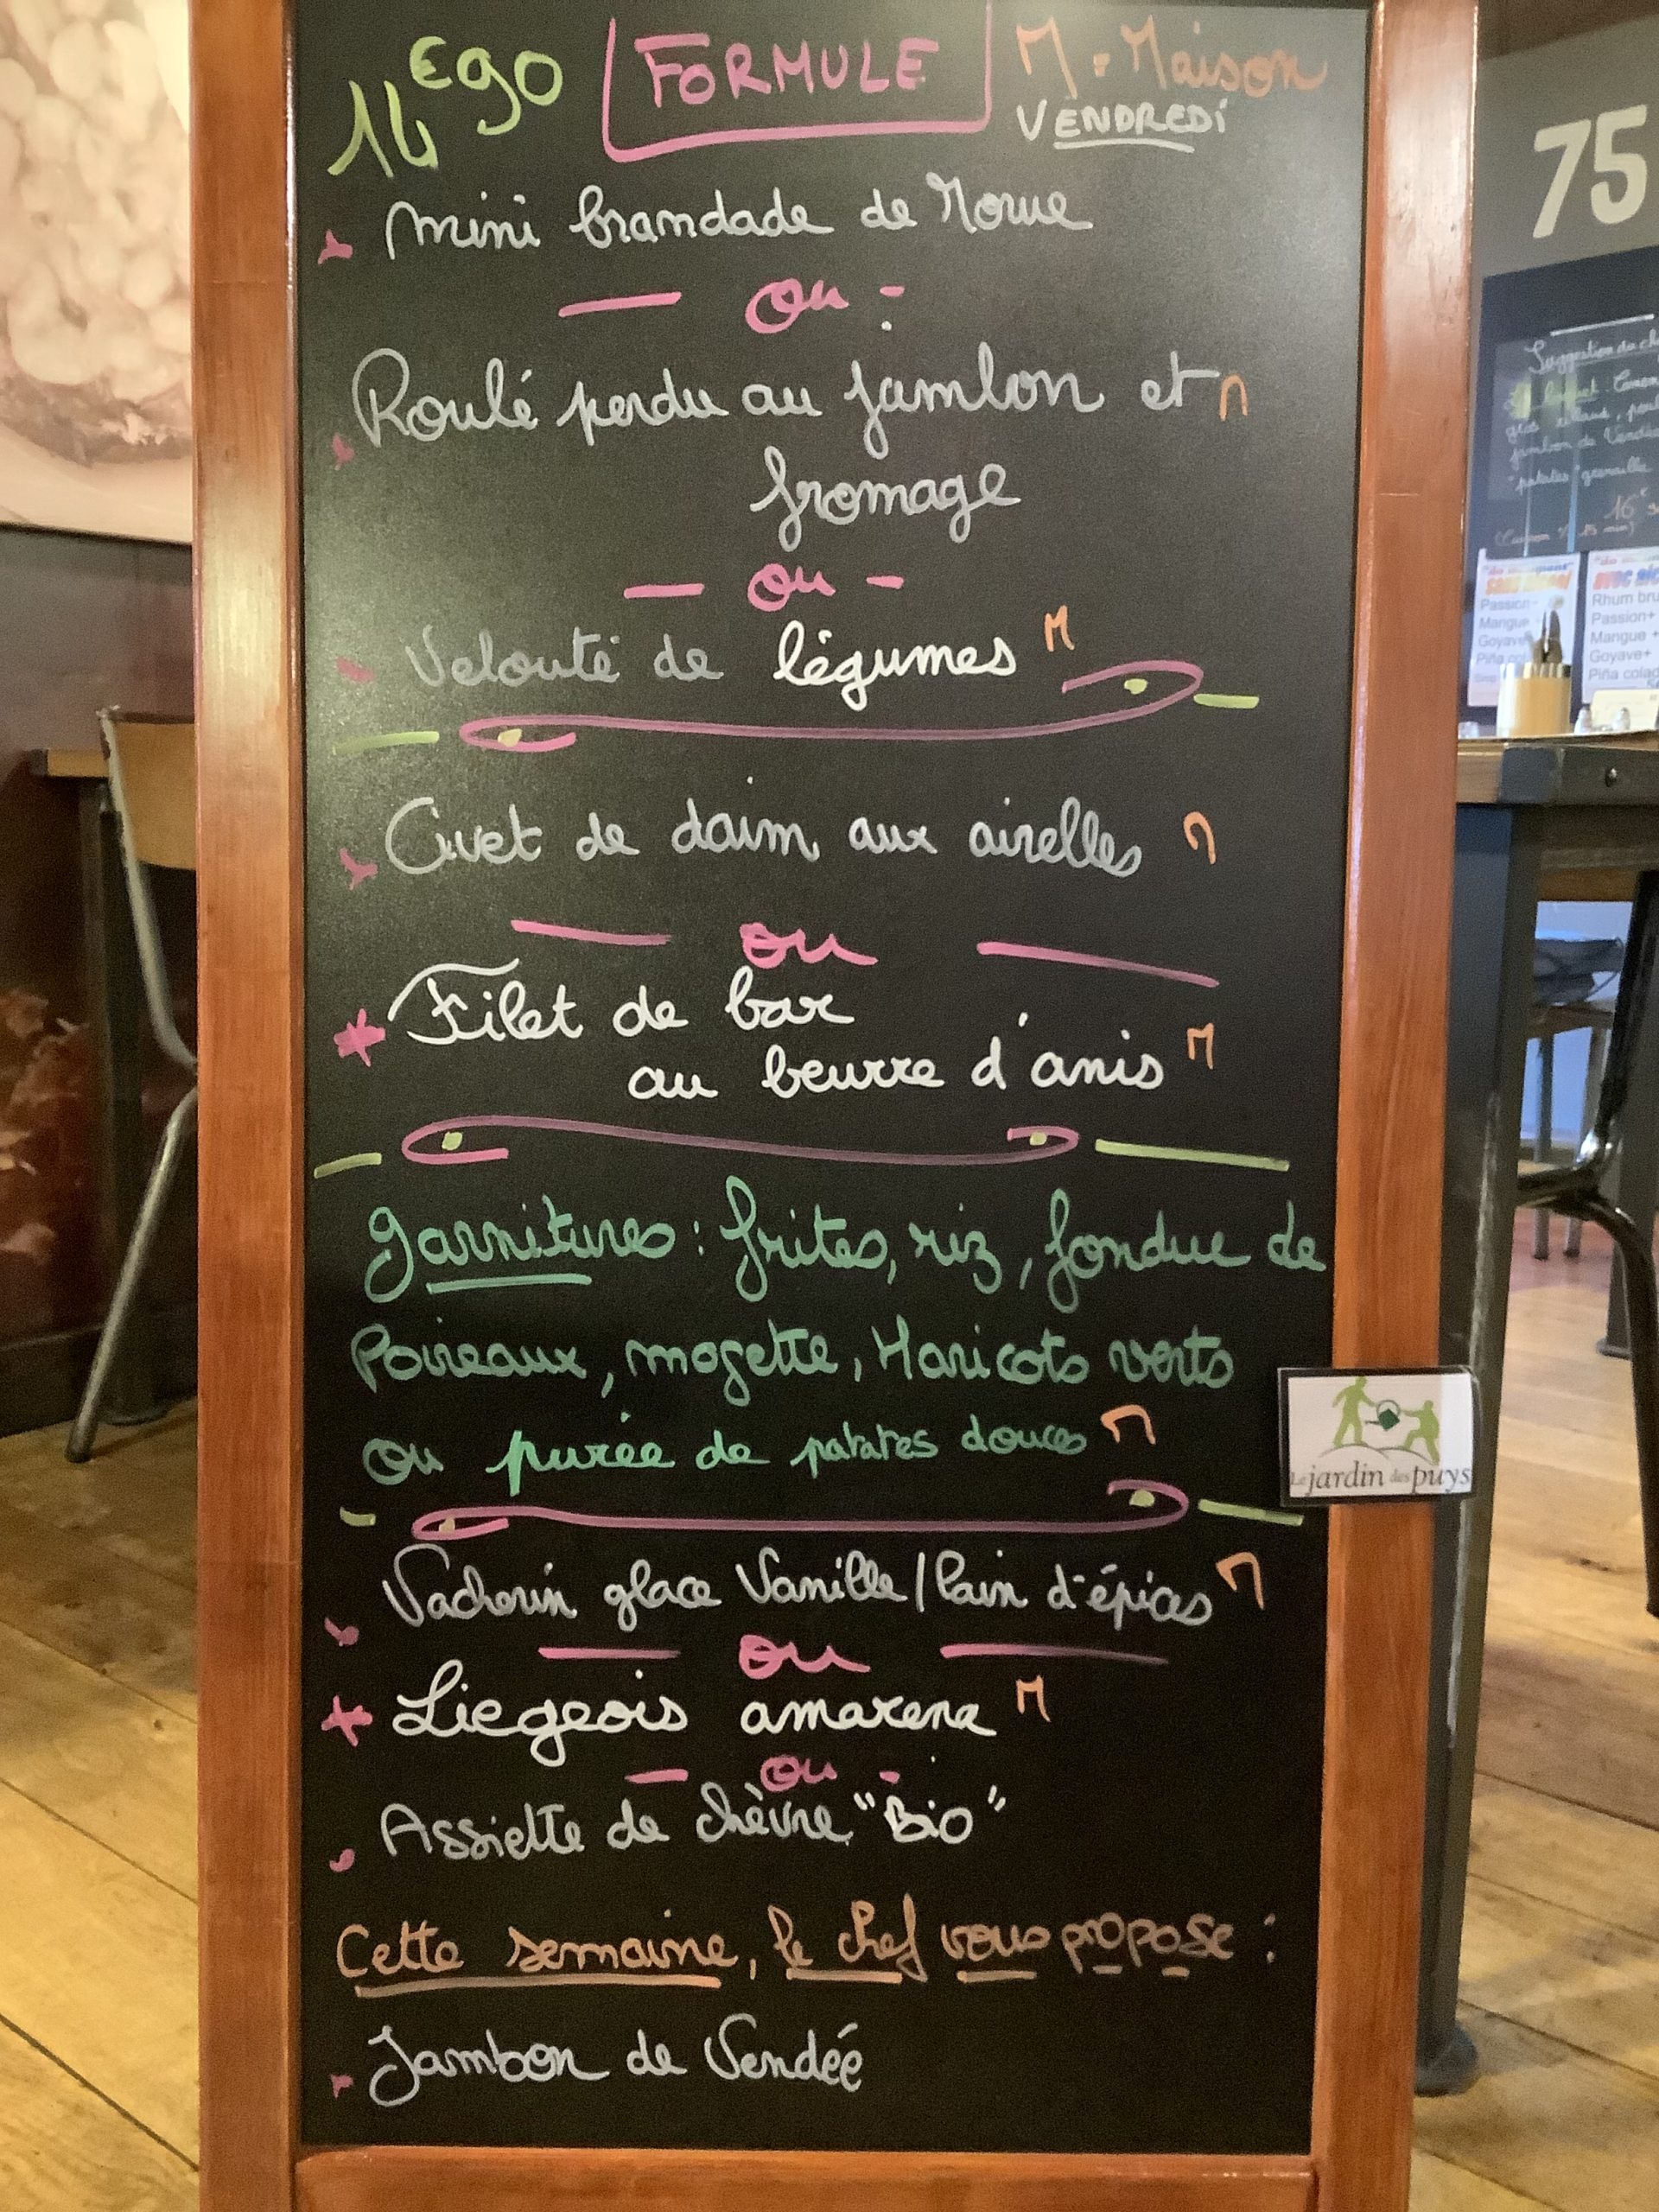 14€90 FORMULE M = Maison
VENDREDI
mini brandade de Morue
ou :
Roulé perdu au jambon et M
fromage
ou
Velouté de légumes M
Civet de daim aux airelles M
ou
Filet de bar
au beurre d'anis M
garnitures : frites, riz, fondue de
Poireaux, mogette, Haricots verts
ou purée de patates douces M
Vacherin glace Vanille / Pain d'épices M
ou
Liegeois amarena M
ou
Assiette de chèvre "Bio"
Cette semaine, le chef vous propose :
Jambon de Vendée
Le jardin des puys
75
Suggestion du
jambon de Vendée
patates grenaille
16€
Passion
Mangue
Goyave
Piña col
Rhum bru
Passion+
Mangue +
Goyave+
Piña colad